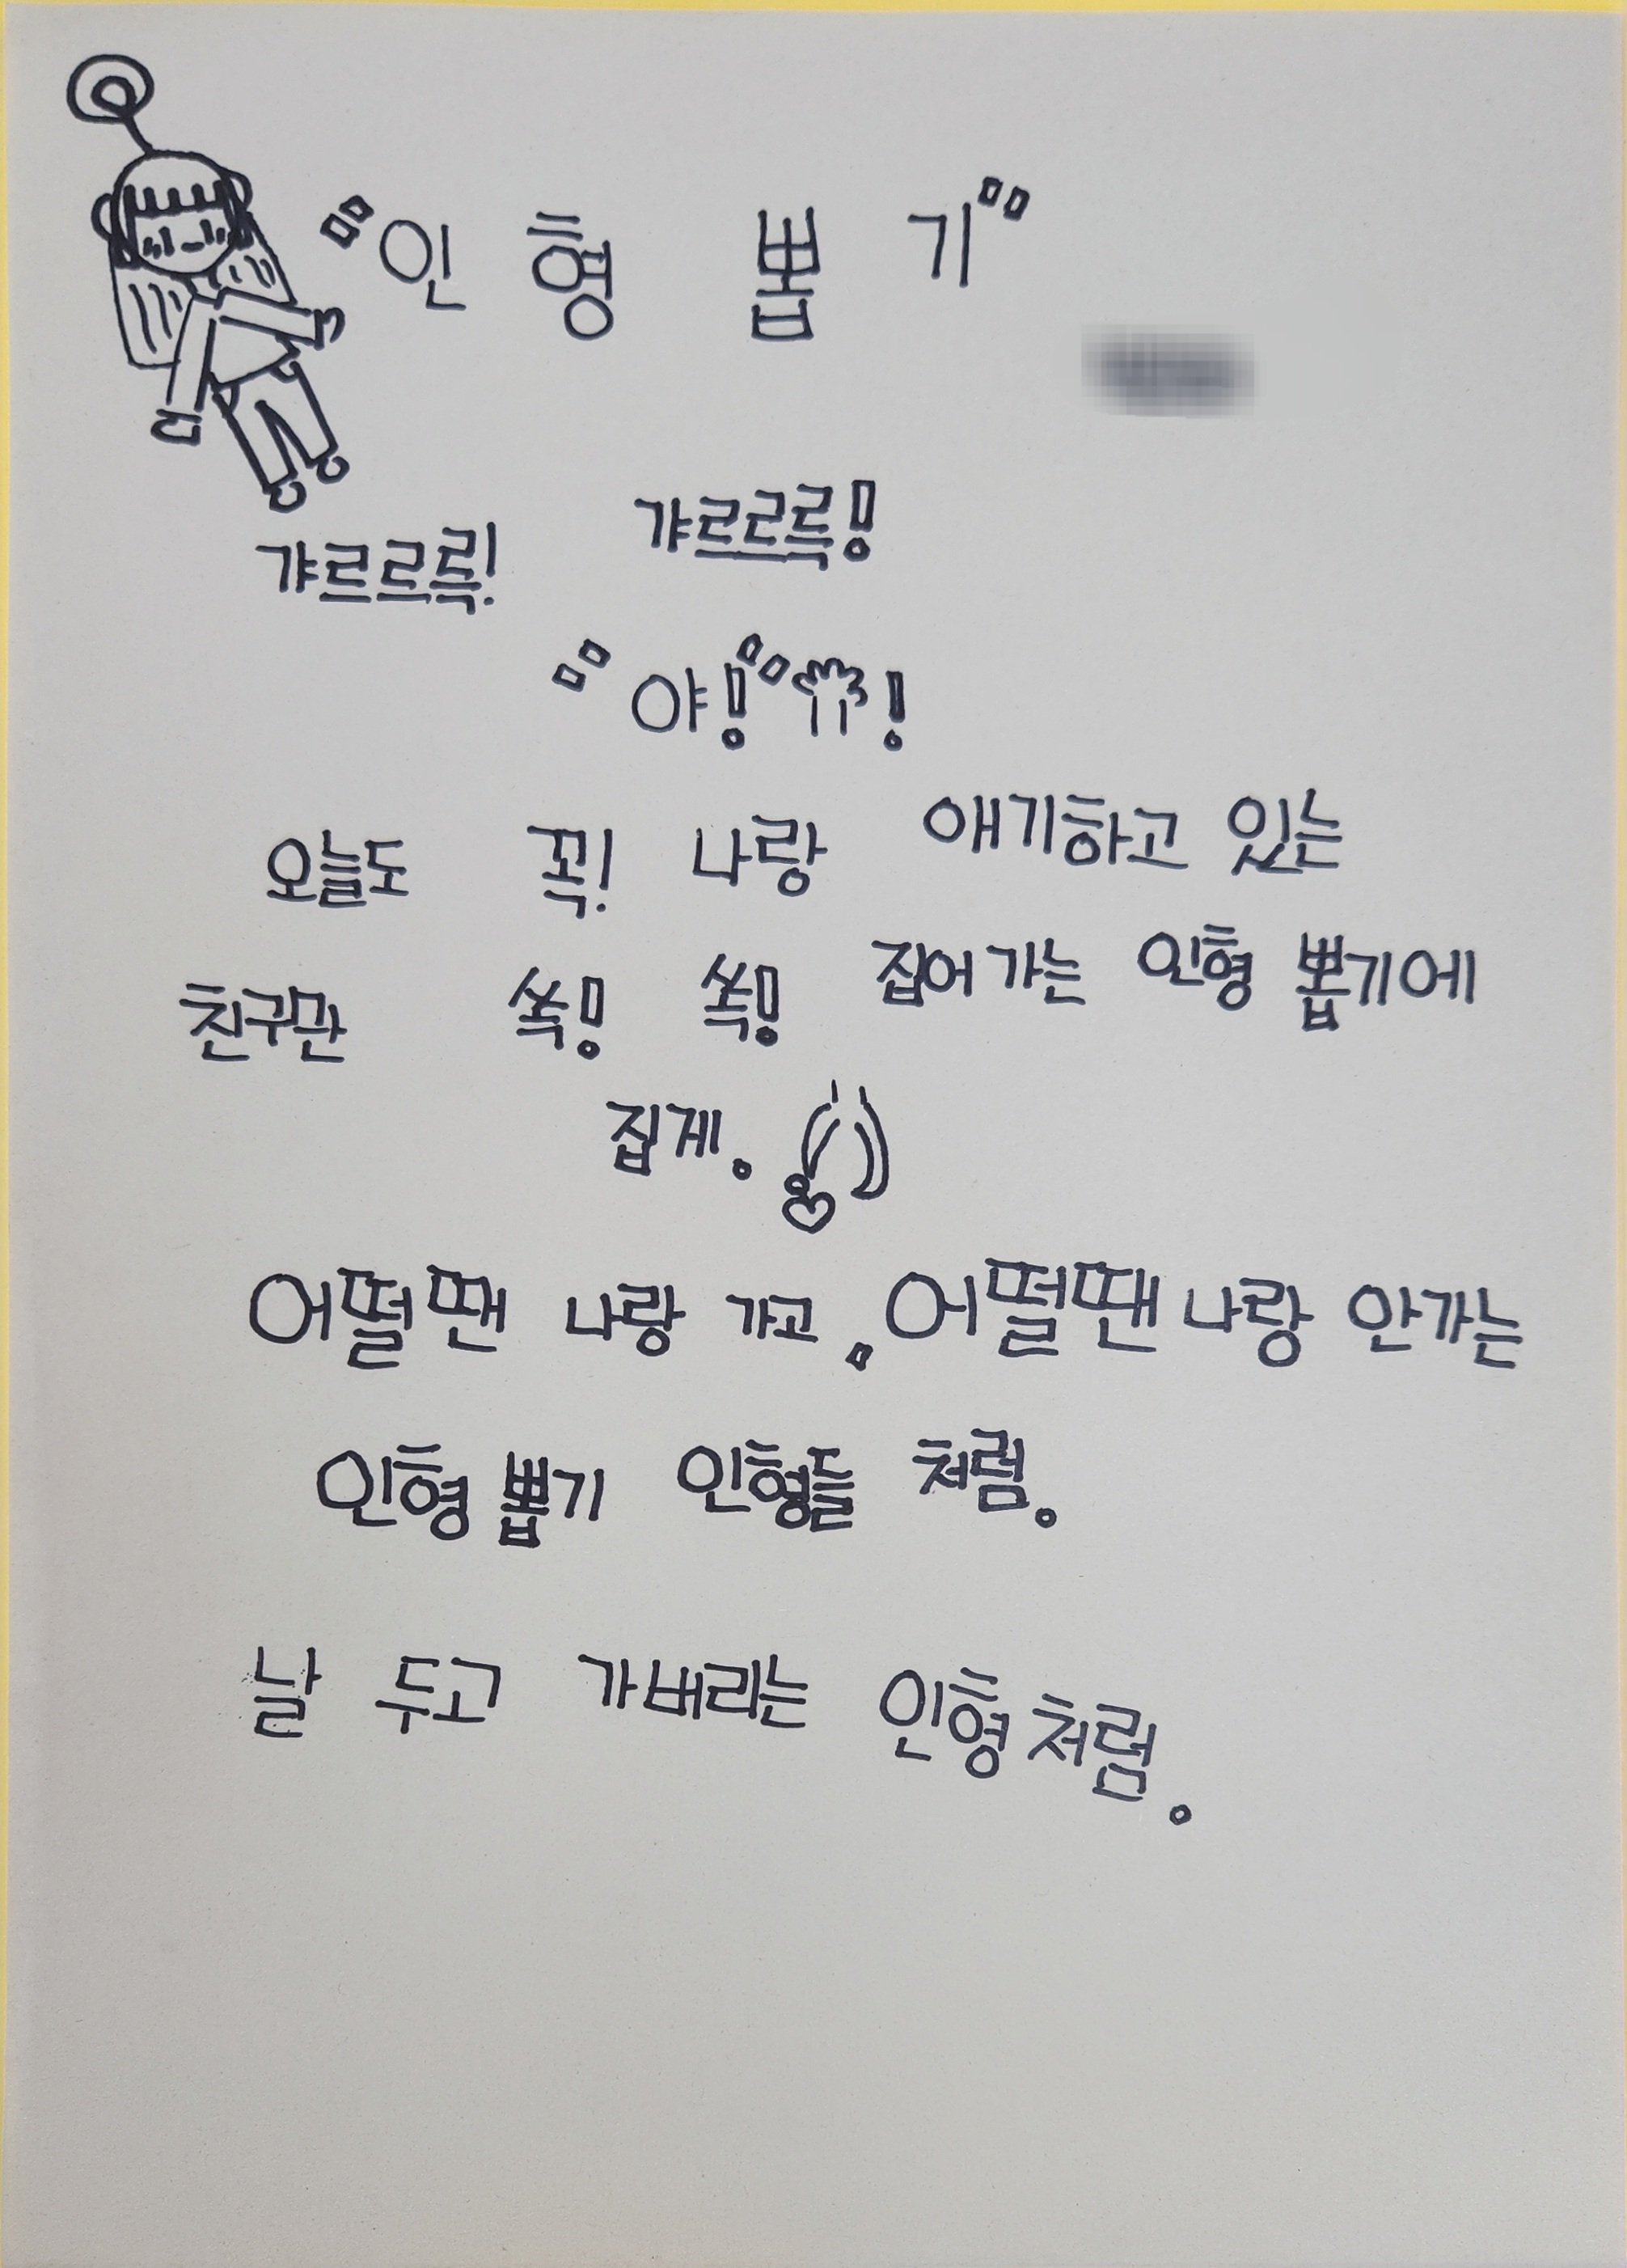 "인 형 뽑 기"
갸르르륵! 갸르르륵!
"야!" !
오늘도 꼭! 나랑 얘기하고 있는
친구만 쏙! 쏙! 집어가는 인형 뽑기에
집게.
어떨땐 나랑 가고, 어떨땐 나랑 안가는
인형 뽑기 인형들 처럼.
날 두고 가버리는 인형처럼.